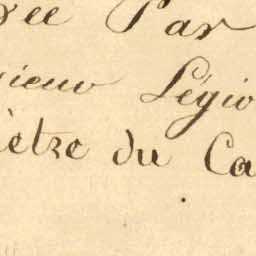 ée Par
sieur Légio
être du Ca